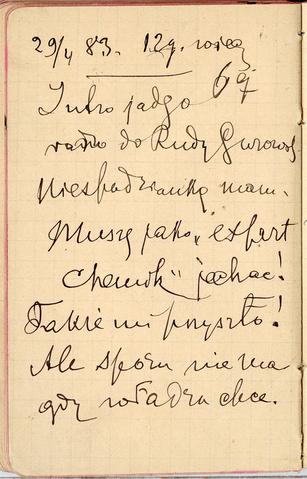 29/4 83. 12g.
6 g
Jutro jadę
rano do Rudy Guzowsk
Niespodziankę mam.
Muszę jako „expert
chemik" jechać!
Takie mi przyszło!
Ale sporu nie ma
gdy władza chce.